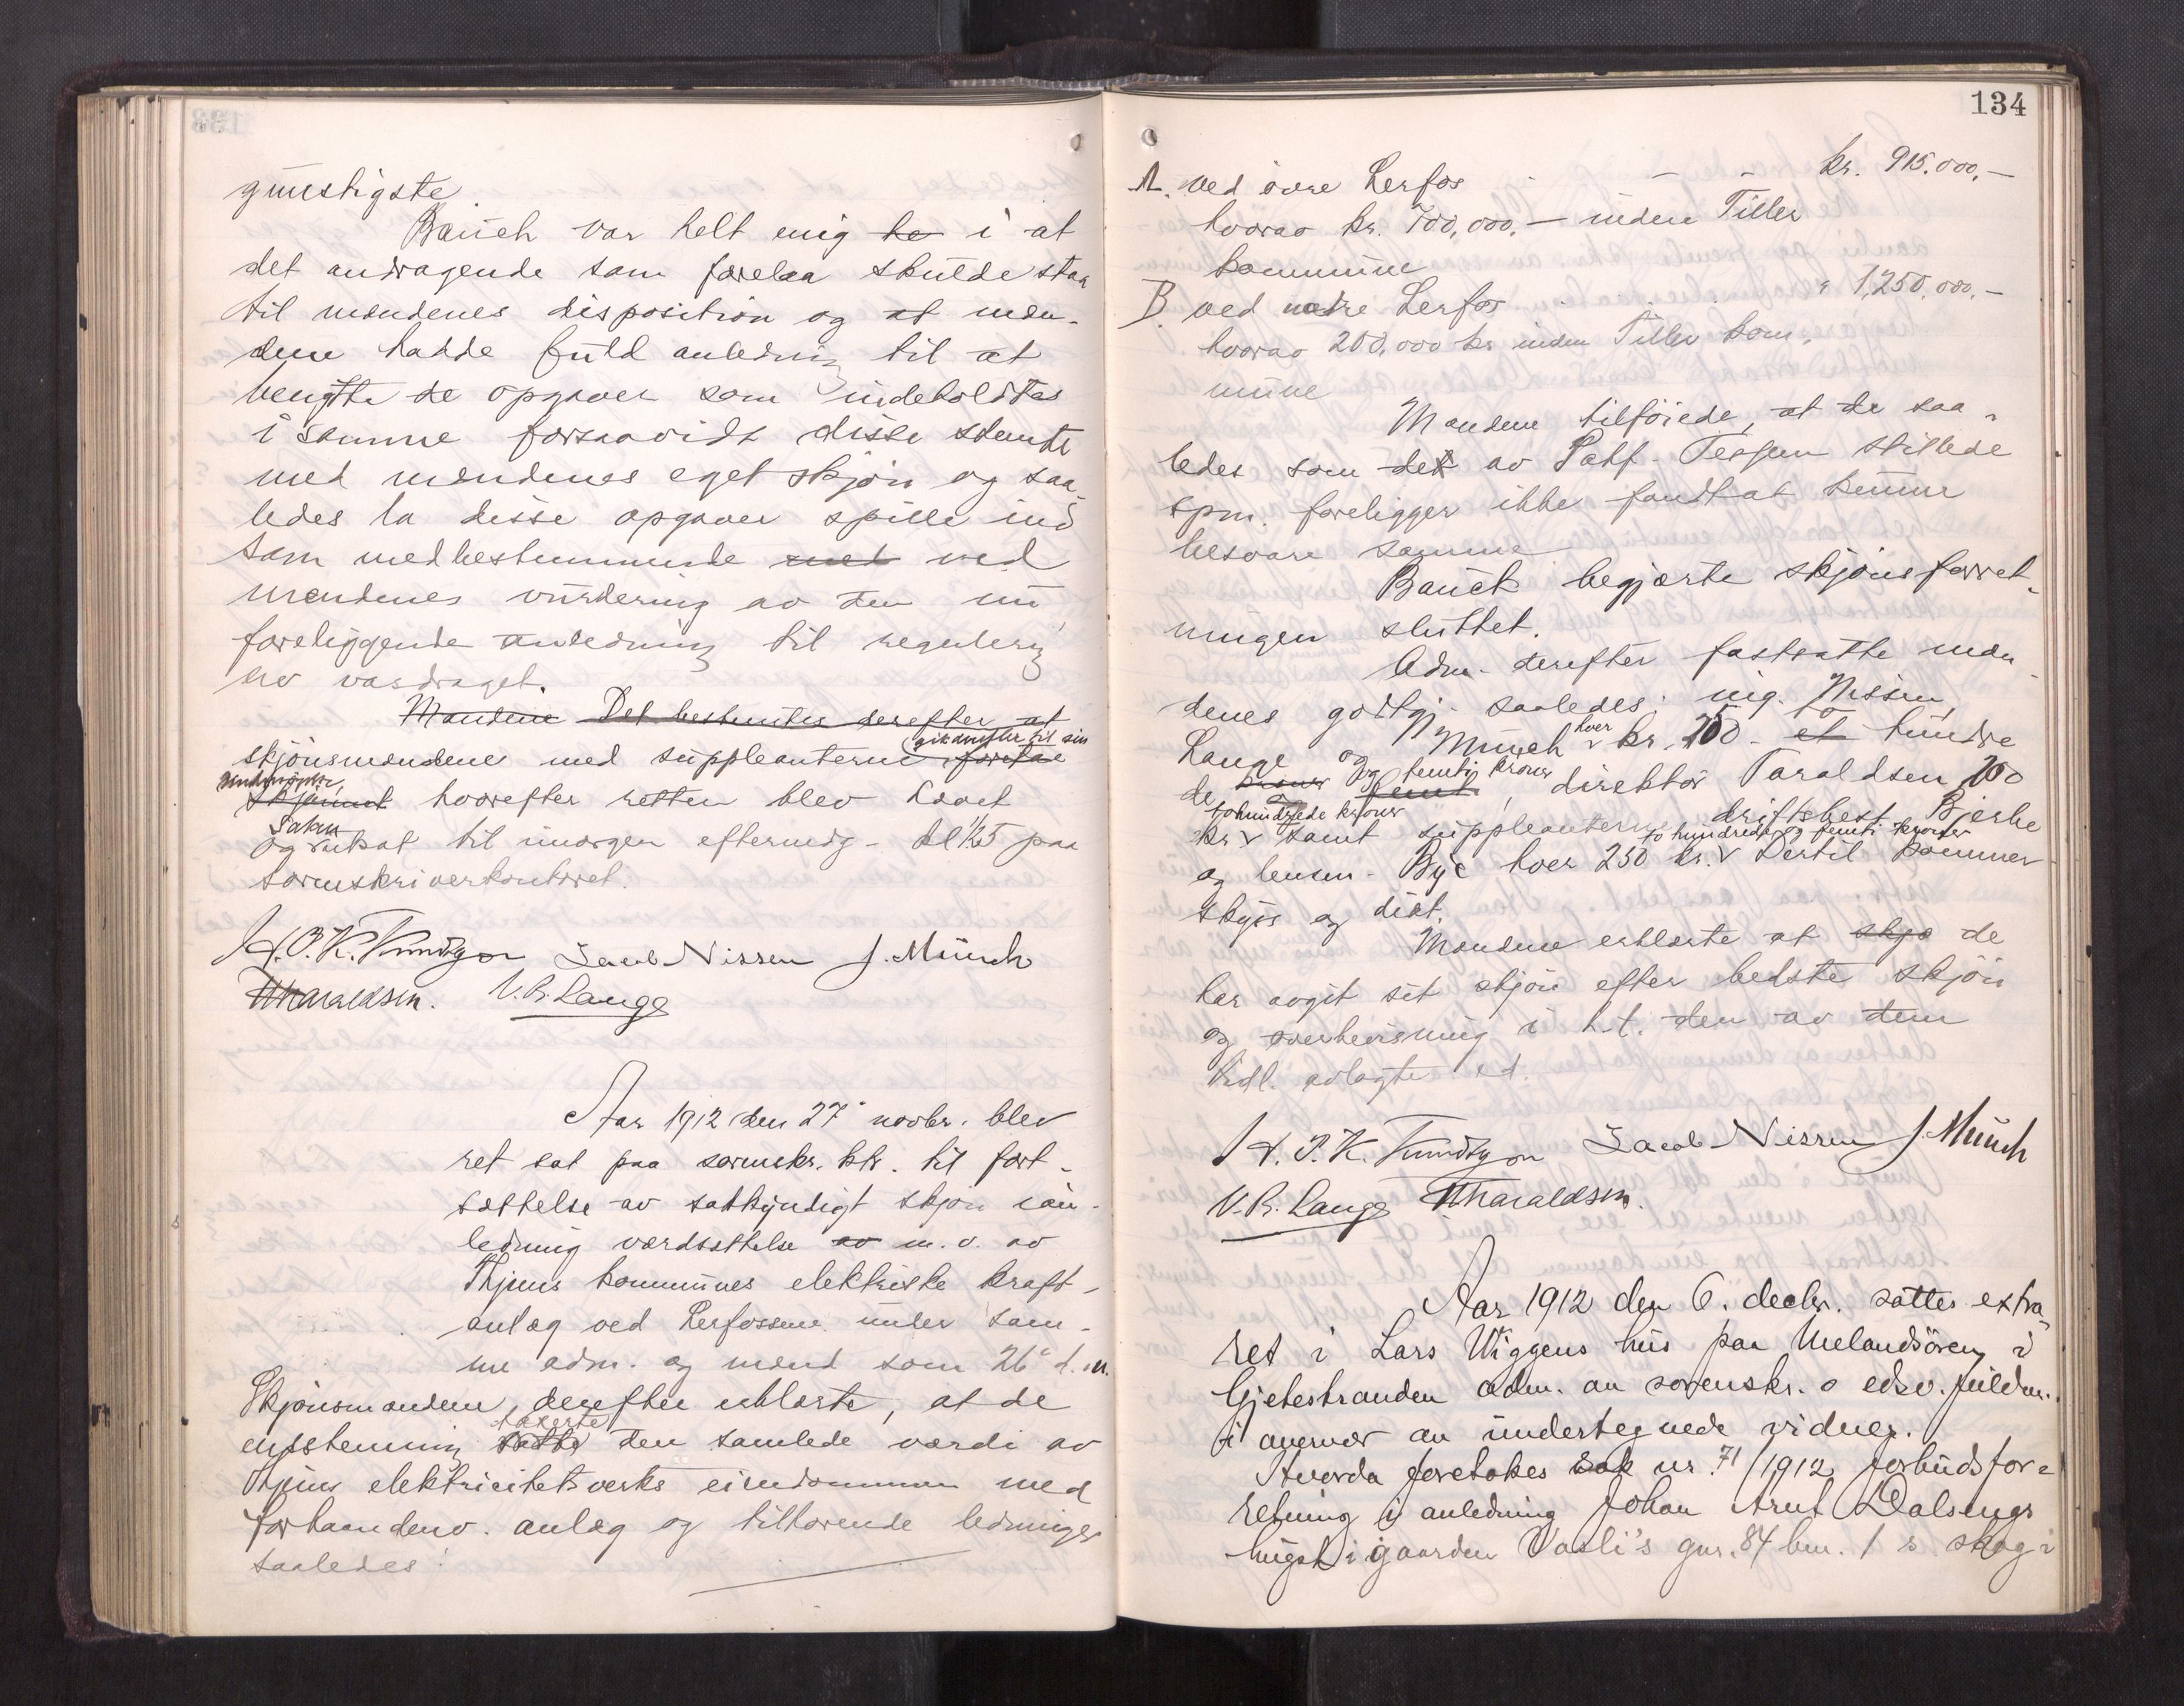 günstigste.
Bauck var helt enig ha i at
det andragende som forelaa skulde staa
til mændenes disposition og at mæn-
dene hadde fuld anledning til at
benytte de opgaver som indeholdtes
i samme forsaavidt disse stemte
med mændenes eget skjøn og saa-
ledes la disse opgaver spille ind
som medbestemmende med ved
mændenes vurdering av den nu
foreliggende anledning til regulering
av vasdraget.
Mændene Det bestemtes derefter at
skjønsmændene med suppleanterne foretae gik derefter til sin
skjønnet hvorefter retten blev hævet
og Saken utsat til imorgen eftermdg. kl 1/25 paa
sorenskriverkontoret.
H. P. K. Jacob Nissen J. Münch
Tharaldsen. V. R. Lange
Aar 1912 den 27 novbr. blev
ret sat paa sorenskr. ktr. til fort-
sættelse av sakkyndigt skjøn i an-
ledning værdsættelse av m. v. av
Thjems kommunes elektriske kraft-
anlæg ved Lerfossene under sam-
me adm. og mænd som 26 d. m.
Skjønsmændene, derefter erklærte, at de
enstemmig satte taxerte den samlede værdi av
Thjems elektricitetsverks eiendommen med
forhaandenv. anlæg og tilhørende ledninger
saaledes:
134
A. ved øvre Lerfos - - - kr. 915.000,-
hvorav kr. 700,000.- inden Tiller
kommune
B. ved nedre Lerfos " 1,250,000.-
hvorav 200,000 kr inden Tiller kom-
mune
Mændene tilføiede, at de saa-
ledes som det av Sakf. stillede
spm. foreligger ikke fandt at kunne
besvare samme
Bauck begjærte skjønsforret-
ningen sluttet.
Adm. derefter fastsatte mæn
denes godtgj. saaledes: ing. Nissen,
Lange og Münch hver kr. 250 - et to hundre
de kroner og femti kroner, direktør Taraldsen 200
kr. tohundrede kroner samt suppleanterne driftsbest. Bjerke
og lensm. Bye hver 250 kr. to hundrede og femti kroner Dertil kommer
skyss og diæt.
Mændene erklærte at skjø de
har avgit sit skjøn efter bedste skjøn
og overbevisning i h.t. den av dem
tidl. avlagte ed.
H. P. K. Jacob Nissen J. Münch
V. R. Lange Tharaldsen.
Aar 1912 den 6. decbr. sattes extra
ret i Lars Wiggens hus paa Melandsøren i
Gjetestranden adm. av sorenskr. o edsv. fuldm.
i overvær av undertegnede vidner.
Hvorda foretokes Sak nr. 71/1912 forbudsfor-
retning i anledning Johan Arnt Dalsengs
hugst i gaarden gnr. 84 bnr. 1 s skog i